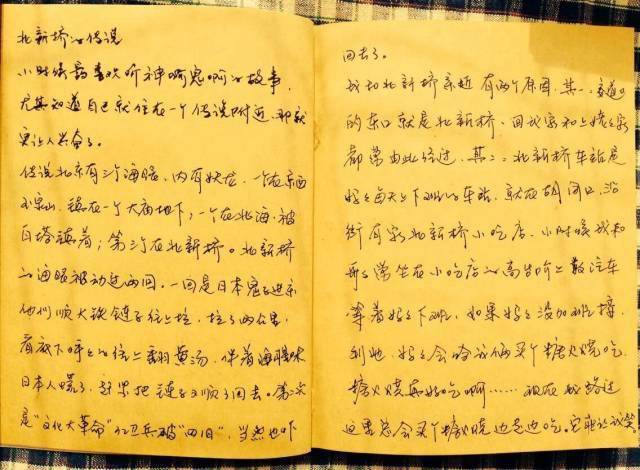 北新桥的传说
小时候最喜欢听神啊鬼啊的故事,
尤其知道自己就住在一个传说附近,那就
更让人兴奋了。
传说北京有三个海眼,内有妖龙,一个在京西
玉泉山,镇在一个大庙地下;一个在北海,被
白塔镇着;第三个在北新桥。北新桥
的海眼被动过两回。一回是日本鬼子进京
他们顺大铁链子往上拉,拉了两公里,
看底下呼上的往上翻黄汤,伴着海腥味
日本人慌了,赶紧把链子又顺了回去。第二次
是"文化大革命"红卫兵破"四旧",当然也吓
回去了。
我切北新桥亲近有两个原因,其一,家道口
的东口就是北新桥,回我家和上姥姥家
都常由此经过,其二,北新桥车站是
妈妈每天上下班的车站,就在胡同口,沿
街有家北新桥小吃店,小时候我和
哥哥常坐在小吃店的高台阶上数汽车
等着妈妈下班,如果妈妈没加班,接
到她,妈妈会给我俩买个糖火烧吃,
糖火烧真好吃啊……现在我路过
这里总会买个糖火烧边走边吃。它能让我笑